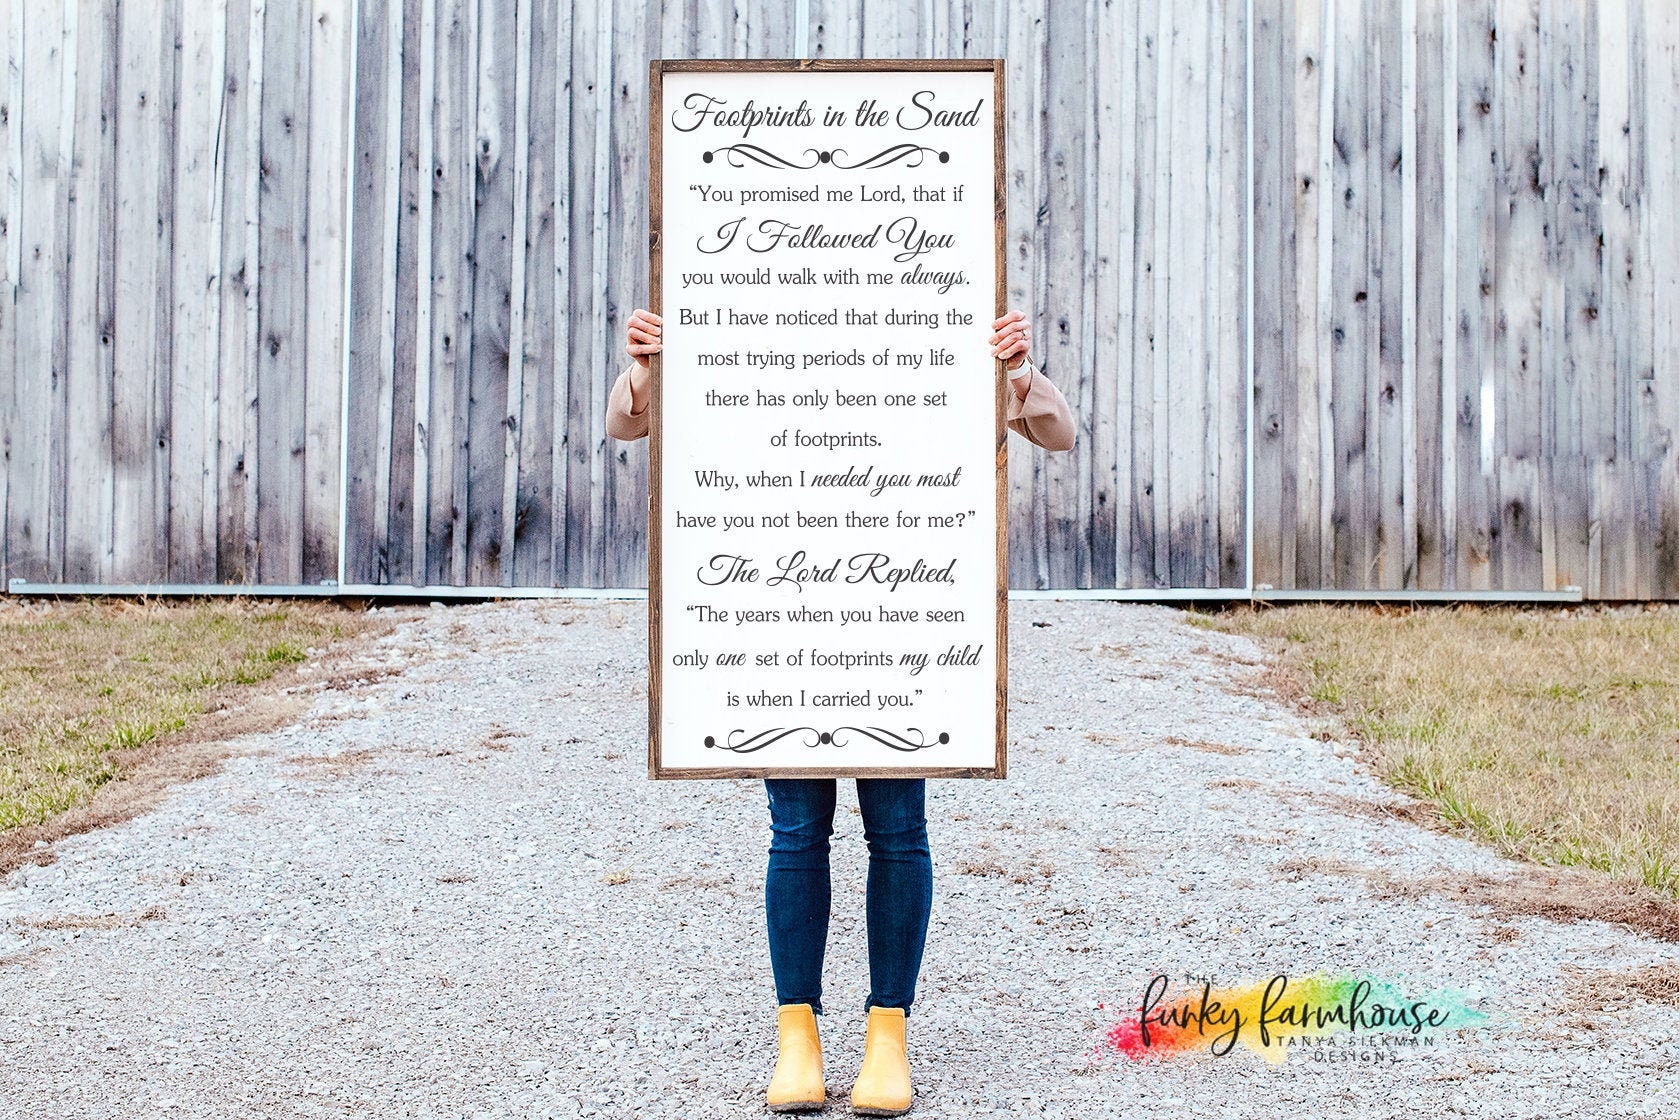 Footprints in the Sand
“You promised me Lord, that if
I Followed You
you would walk with me always.
But I have noticed that during the
most trying periods of my life
there has only been one set
of footprints.
Why, when I needed you most
have you not been there for me?”
The Lord Replied,
“The years when you have seen
only one set of footprints my child
is when I carried you.”
THE
funky farmhouse
TANYA SIEKMAN
DESIGNS